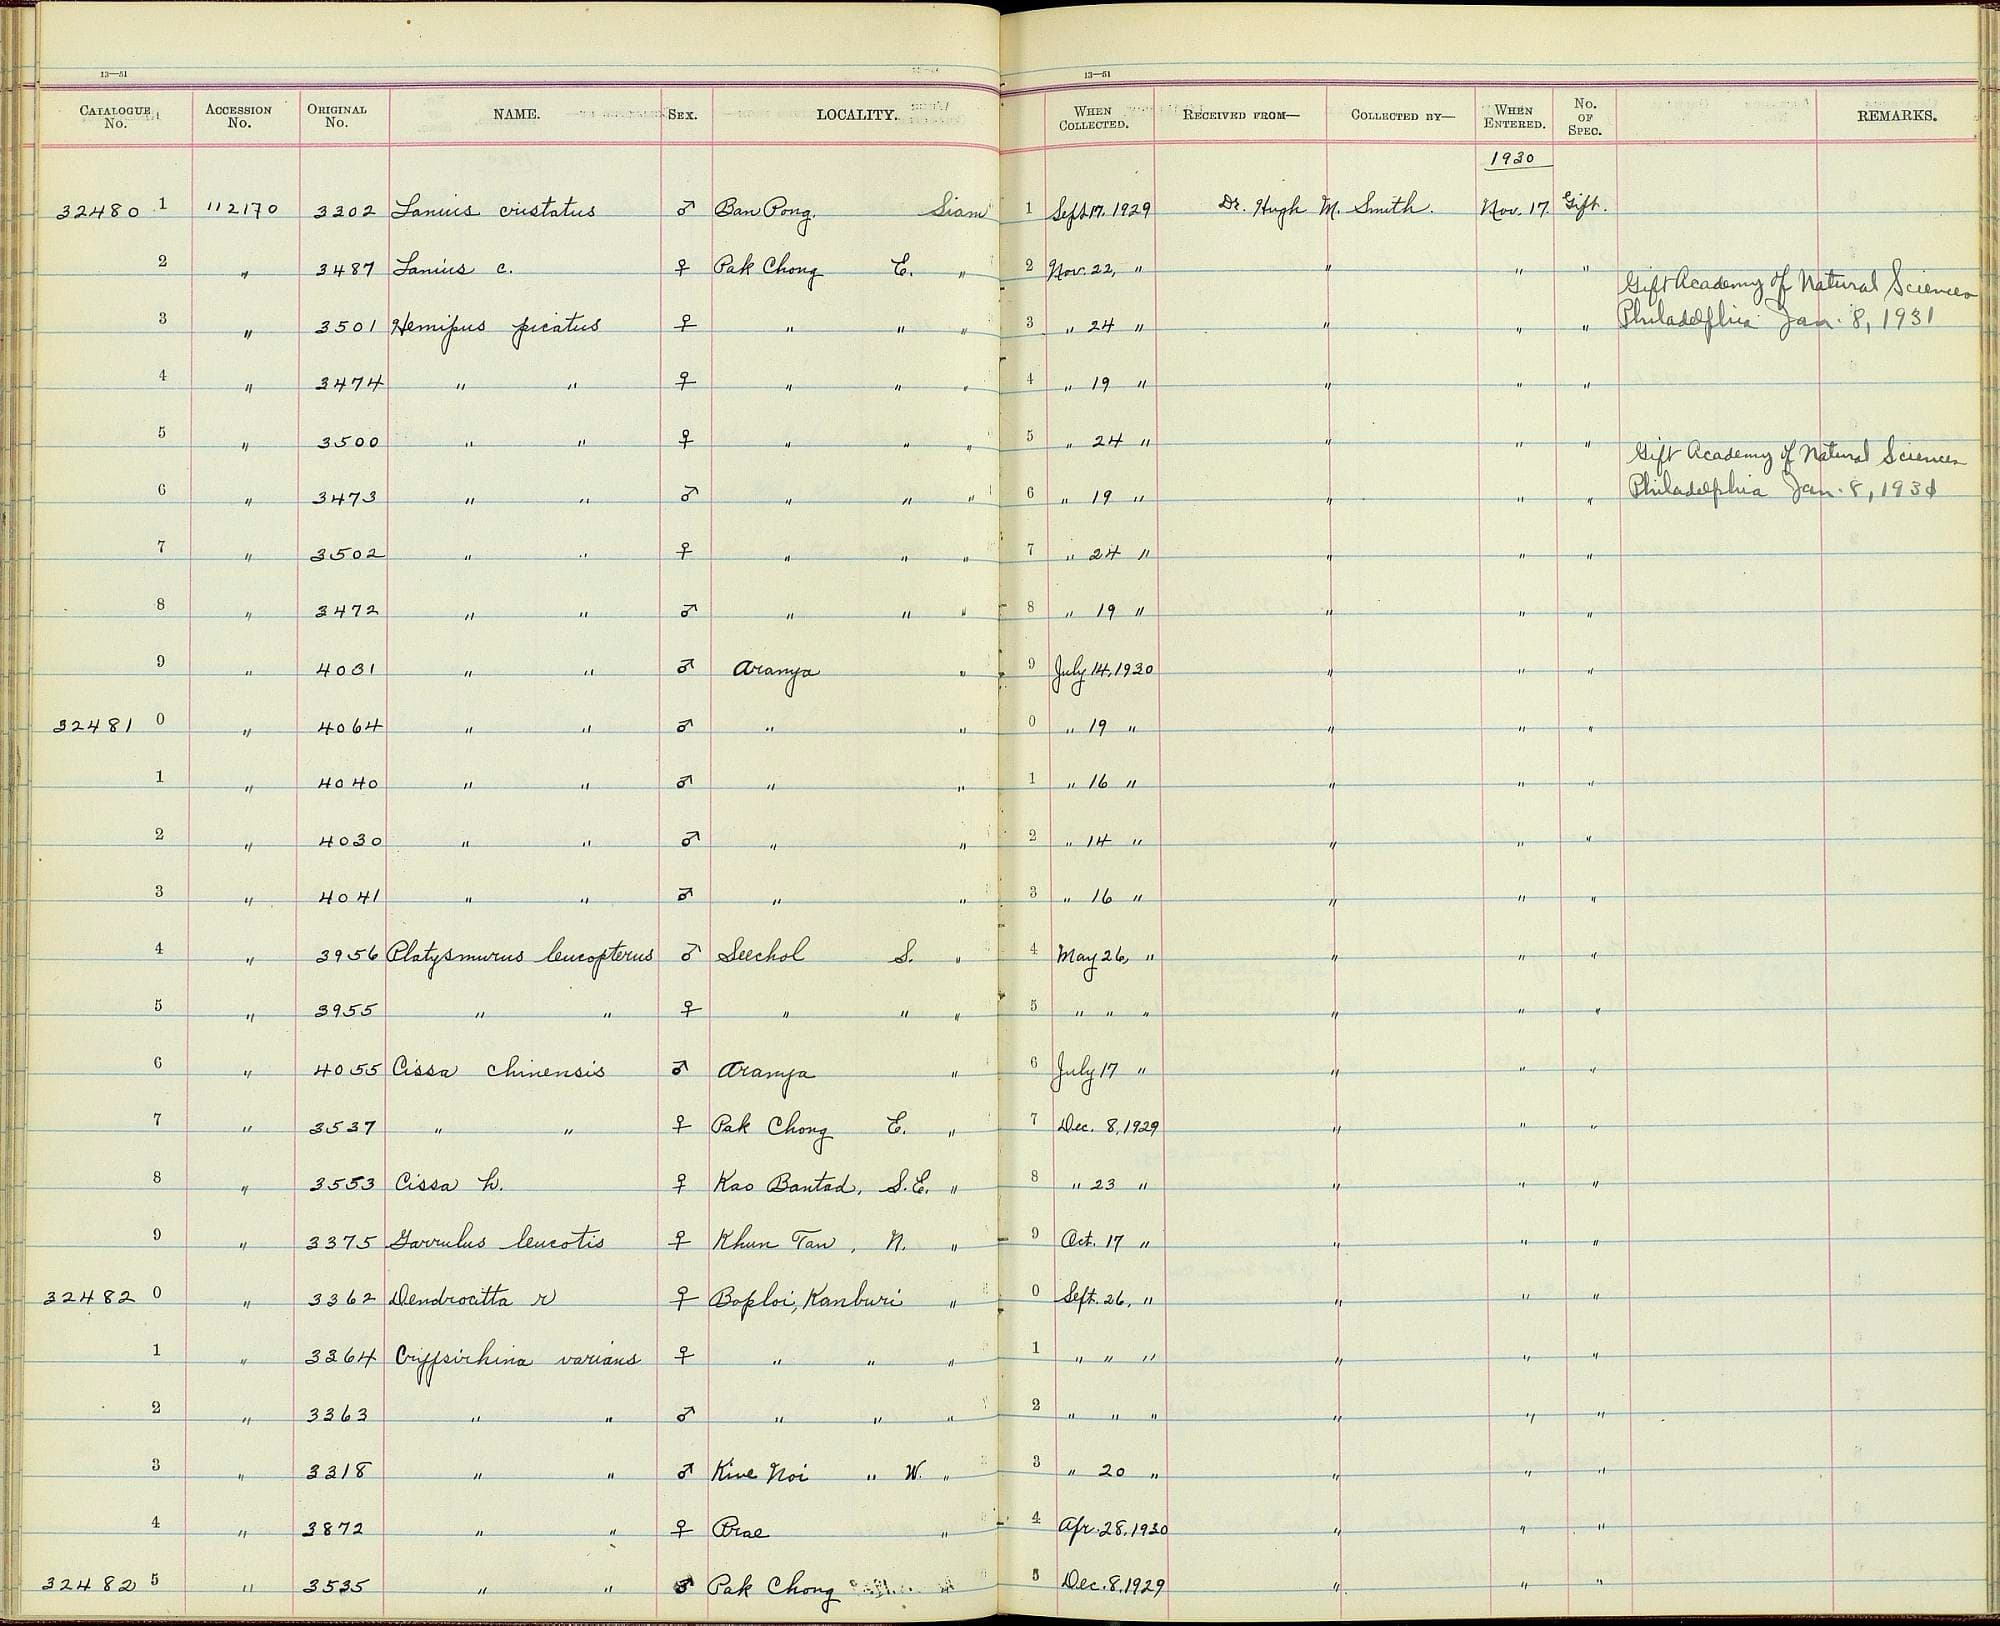 13—51
CATALOGUE No. ACCESSION No. ORIGINAL No. NAME. SEX. LOCALITY.
32480 1 112170 3302 Lanius cristatus ♂ Ban Pong. Siam
2 " 3487 Lanius c. ♀ Pak Chong E. "
3 " 3501 Hemipus picatus ♀ " " "
4 " 3474 " " ♀ " " "
5 " 3500 " " ♀ " " "
6 " 3473 " " ♂ " " "
7 " 3502 " " ♀ " " "
8 " 3472 " " ♂ " " "
9 " 4031 " " ♂ Aranya "
32481 0 " 4064 " " ♂ " "
1 " 4040 " " ♂ " "
2 " 4030 " " ♂ " "
3 " 4041 " " ♂ " "
4 " 3956 Platysmurus leucopterus ♂ Seechol S. "
5 " 3955 " " ♀ " " "
6 " 4055 Cissa chinensis ♂ Aranya "
7 " 3537 " " ♀ Pak Chong E. "
8 " 3553 Cissa h. ♀ Kao Bantad, S.E. "
9 " 3375 Garrulus leucotis ♀ Khun Tan, N. "
32482 0 " 3362 Dendrocitta r ♀ Boploi, Kanburi "
1 " 3364 Crypsirhina varians ♀ " " "
2 " 3363 " " ♂ " " "
3 " 3318 " " ♂ Kwe Noi " W. "
4 " 3872 " " ♀ Prae "
32482 5 " 3535 " " ♂ Pak Chong
13—51
WHEN COLLECTED. RECEIVED FROM— COLLECTED BY— WHEN ENTERED. No. OF SPEC. REMARKS.
1930
1 Sept. 17. 1929 Dr. Hugh M. Smith. Nov. 17. Gift.
2 Nov. 22, " " " "
Gift Academy of Natural Sciences
3 " 24 " " " " Philadelphia Jan. 8, 1931
4 " 19 " " " "
5 " 24 " " " "
Gift Academy of Natural Sciences
6 " 19 " " " " Philadelphia Jan. 8, 1931
7 " 24 " " " "
8 " 19 " " " "
9 July 14, 1930 " " "
0 " 19 " " " "
1 " 16 " " " "
2 " 14 " " " "
3 " 16 " " " "
4 May 26, " " " "
5 " " " " " "
6 July 17 " " " "
7 Dec. 8, 1929 " " "
8 " 23 " " " "
9 Oct. 17 " " " "
0 Sept. 26, " " " "
1 " " " " " "
2 " " " " " "
3 " 20 " " " "
4 Apr. 28, 1930 " " "
5 Dec. 8, 1929 " " "